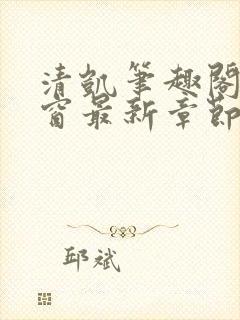 清凯笔趣阁
窗最新章节
邱斌